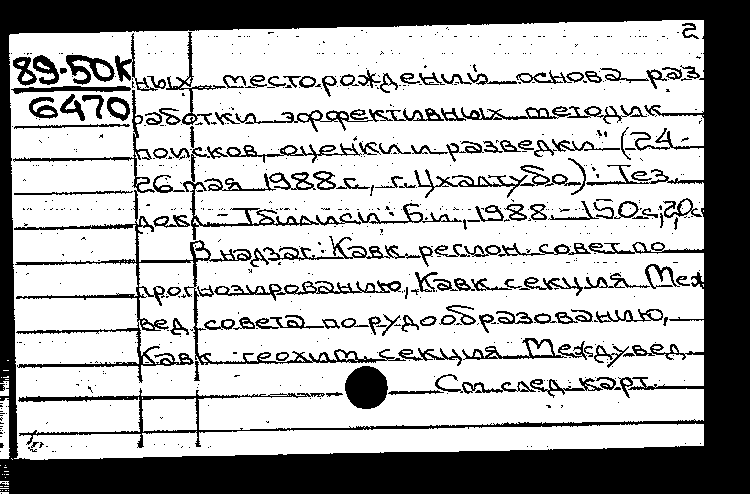 2
89-50К
6470
ных месторождений основа раз
работки эффективных методик
поисков, оценки и разведки" (24-
26 мая 1988 г., г. Цхалтубо): Тез.
докл. - Тбилиси: Б.и., 1988. - 150с; 20с
В надзаг.: Кавк. регион. совет по
прогнозированию, Кавк. секция Меж
вед. совета по рудообразованию,
Кавк. геохим. секция Междувед.
См. след. карт.